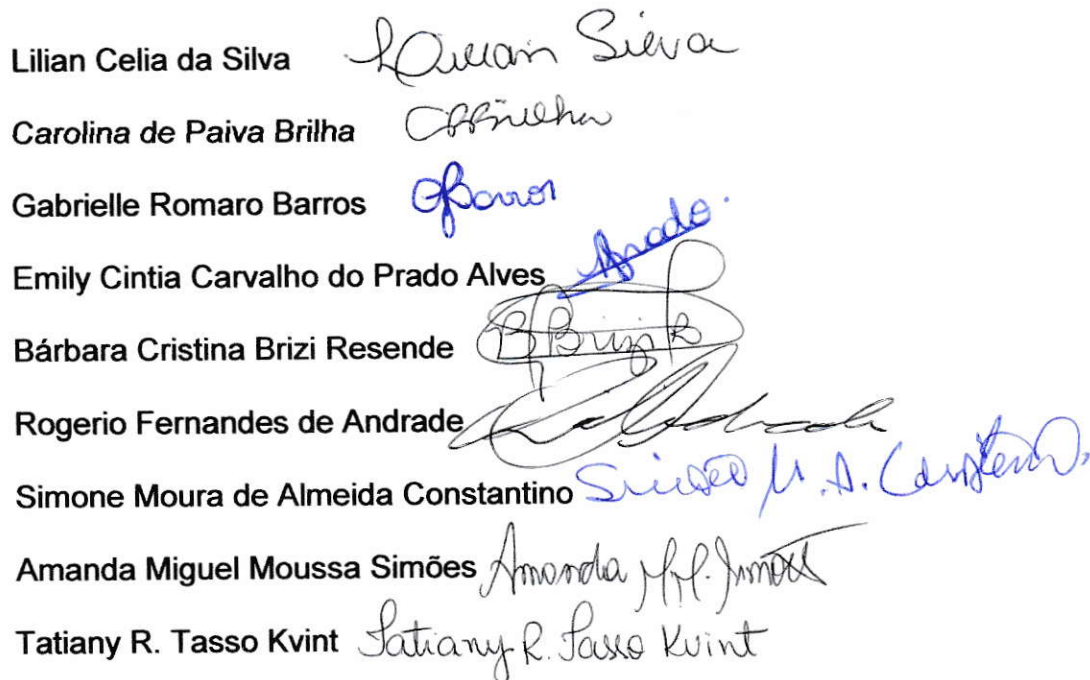 Lilian Celia da Silva Lilian Silva
Carolina de Paiva Brilha CPBrilha
Gabrielle Romaro Barros GBarros
Emily Cintia Carvalho do Prado Alves Prado.
Bárbara Cristina Brizi Resende BBrizi R
Rogerio Fernandes de Andrade
Simone Moura de Almeida Constantino Simone M. A. Constantino
Amanda Miguel Moussa Simões Amanda M.M. Simões
Tatiany R. Tasso Kvint Tatiany R. Tasso Kvint